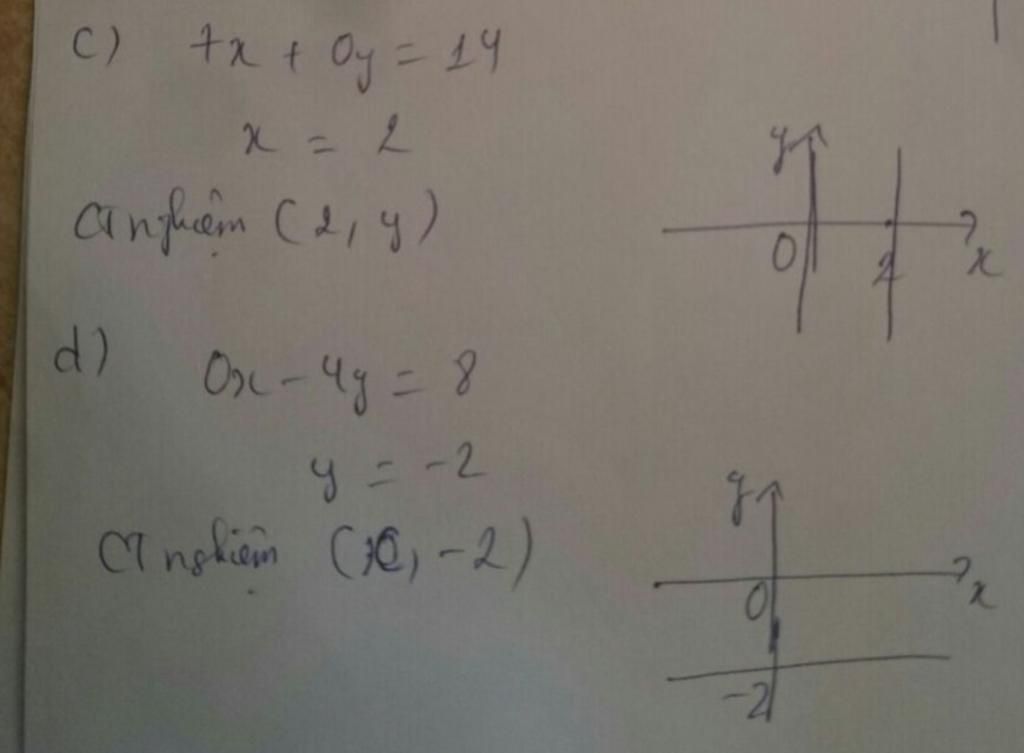 c) 7x + 0y = 14
x = 2
CT nghiệm (2, y)
y
0 2 x
d) 0x - 4y = 8
y = -2
CT nghiệm (x, -2)
y
0 x
-2